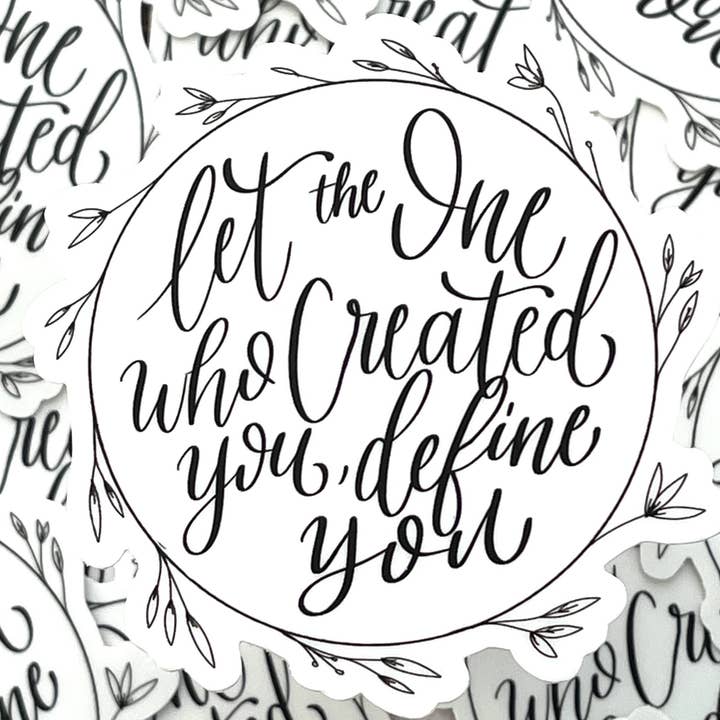 let the One
who Created
you, define
you